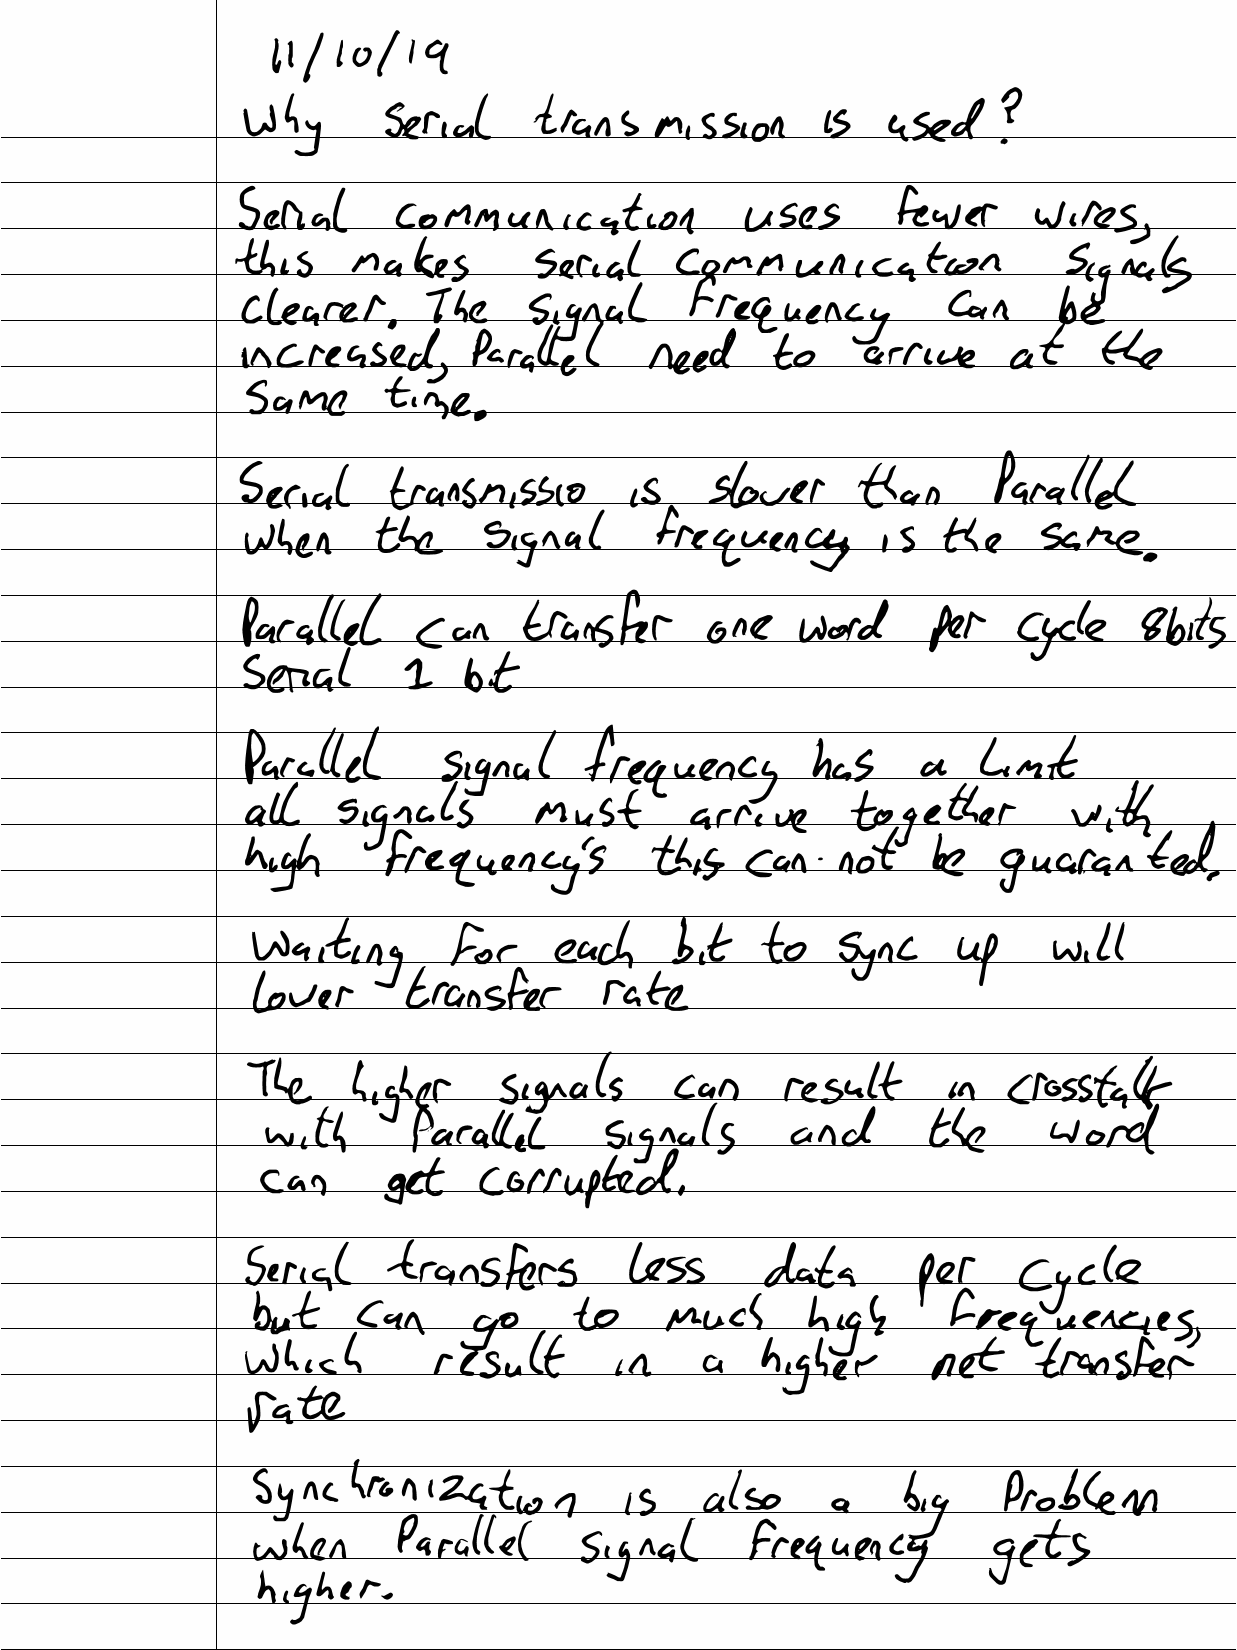 11/10/19
Why Serial transmission is used?
Serial communication uses fewer wires,
this makes serial communication signals
clearer. The signal frequency can be
increased, Parallel need to arrive at the
same time.
Serial transmissio is slower than Parallel
when the signal frequency is the same.
Parallel can transfer one word per cycle 8bits
Serial 1 bit
Parallel signal frequency has a limit
all signals must arrive together with
high frequency's this can not be guaranted.
Waiting for each bit to sync up will
lower transfer rate
The higher signals can result in crosstalk
with Parallel signals and the word
can get corrupted.
Serial transfers less data per cycle
but can go to much high frequencies,
which result in a higher net transfer
rate
Synchronization is also a big Problem
when Parallel signal frequency gets
higher.